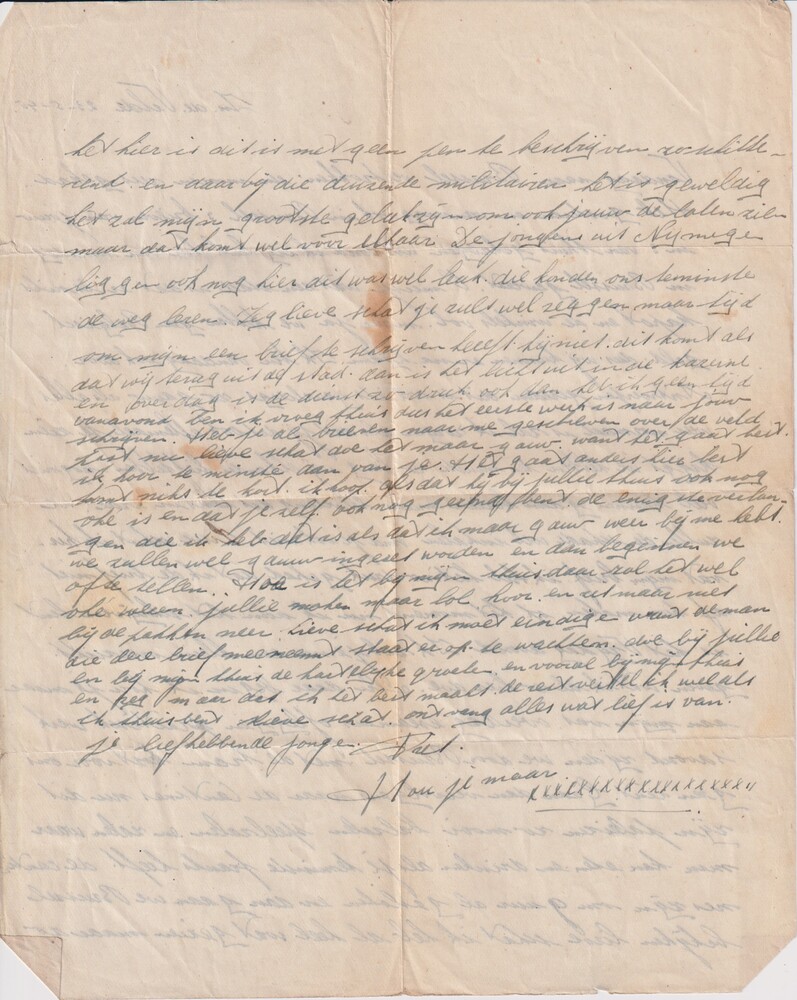 het hier is dit is met geen pen te beschrijven zo schitte-
rend. en daarbij die duizende militairen het is geweldig
het zal mijn grootste geluk zijn om ook jouw de laten zien
maar dat komt wel voor elkaar De jongens uit Nijmege
liggen ook nog hier dit was wel leuk. die konden ons teminste
de weg leren. Zeg lieve schat je zult wel zeggen maar tijd
om mijn een brief te schrijven heeft hij niet. dit komt als
dat wij terug uit de stad. dan is het licht uit in de kazerne
en overdag is de dienst zo druk ook dan heb ik geen tijd
vanavond ben ik vroeg thuis dus het eerste werk is naar jouw
schrijven. Heb je al brieven naar me geschreven over de veld
post nu lieve schat doe het maar gauw want het gaat best.
ik hoor te minste dan van je. Het gaat anders hier best
komt niks te kort. ik hoop als dat hij bij jullie thuis ook nog
oke is en dat je zelf ook nog gezond bent. de enigste verlan-
gen die ik heb dat is als dat ik maar gauw weer bij me hebt.
we zullen wel gauw ingezet worden en dan beginnen we
af te tellen. Hoe is het bij mijn thuis daar zal het wel
oke wezen. jullie maken maar lol hoor. en zit maar niet
bij de pakken neer. Lieve schat ik moet eindige want de man
die deze brief meeneemt staat er op te wachten. doe bij jullie
en bij mijn thuis de hartelijke groete en vooral bij mijn thuis
en zeg maar dat ik het best maakt. de rest vertel ik wel als
ik thuis bent Lieve schat. ontvang alles wat lief is van.
je liefhebbende jonge.
Hou je maar xxxxxxxxxxxxxxxxx